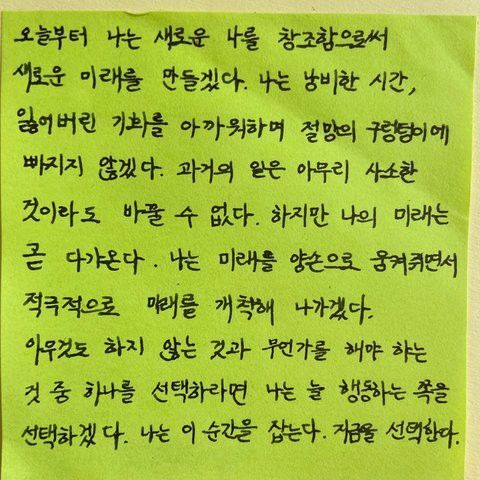 오늘부터 나는 새로운 나를 창조함으로써
새로운 미래를 만들겠다. 나는 낭비한 시간,
잃어버린 기회를 아까워하며 절망의 구렁텅이에
빠지지 않겠다. 과거의 일은 아무리 사소한
것이라도 바꿀 수 없다. 하지만 나의 미래는
곧 다가온다. 나는 미래를 양손으로 움켜쥐면서
적극적으로 미래를 개척해 나가겠다.
아무것도 하지 않는 것과 무언가를 해야 하는
것 중 하나를 선택하라면 나는 늘 행동하는 쪽을
선택하겠다. 나는 이 순간을 잡는다. 지금을 선택한다.